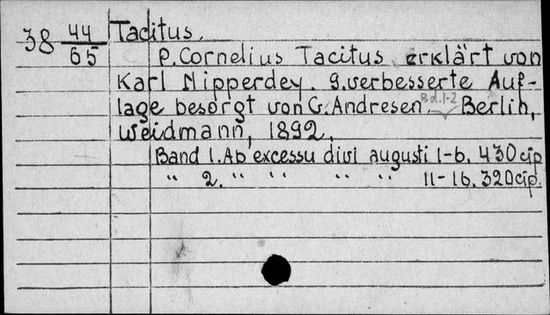 38 44/65 Tacitus.
P. Cornelius Tacitus erklärt von
Karl Nipperdey. 9. verbesserte Auf-
lage besorgt von G. Andresen. Bd. 1-2 Berlin,
Weidmann, 1892.
Band 1. Ab excessu divi augusti 1-6. 430 cip
" 2. " " " " 11-16. 320 cip.